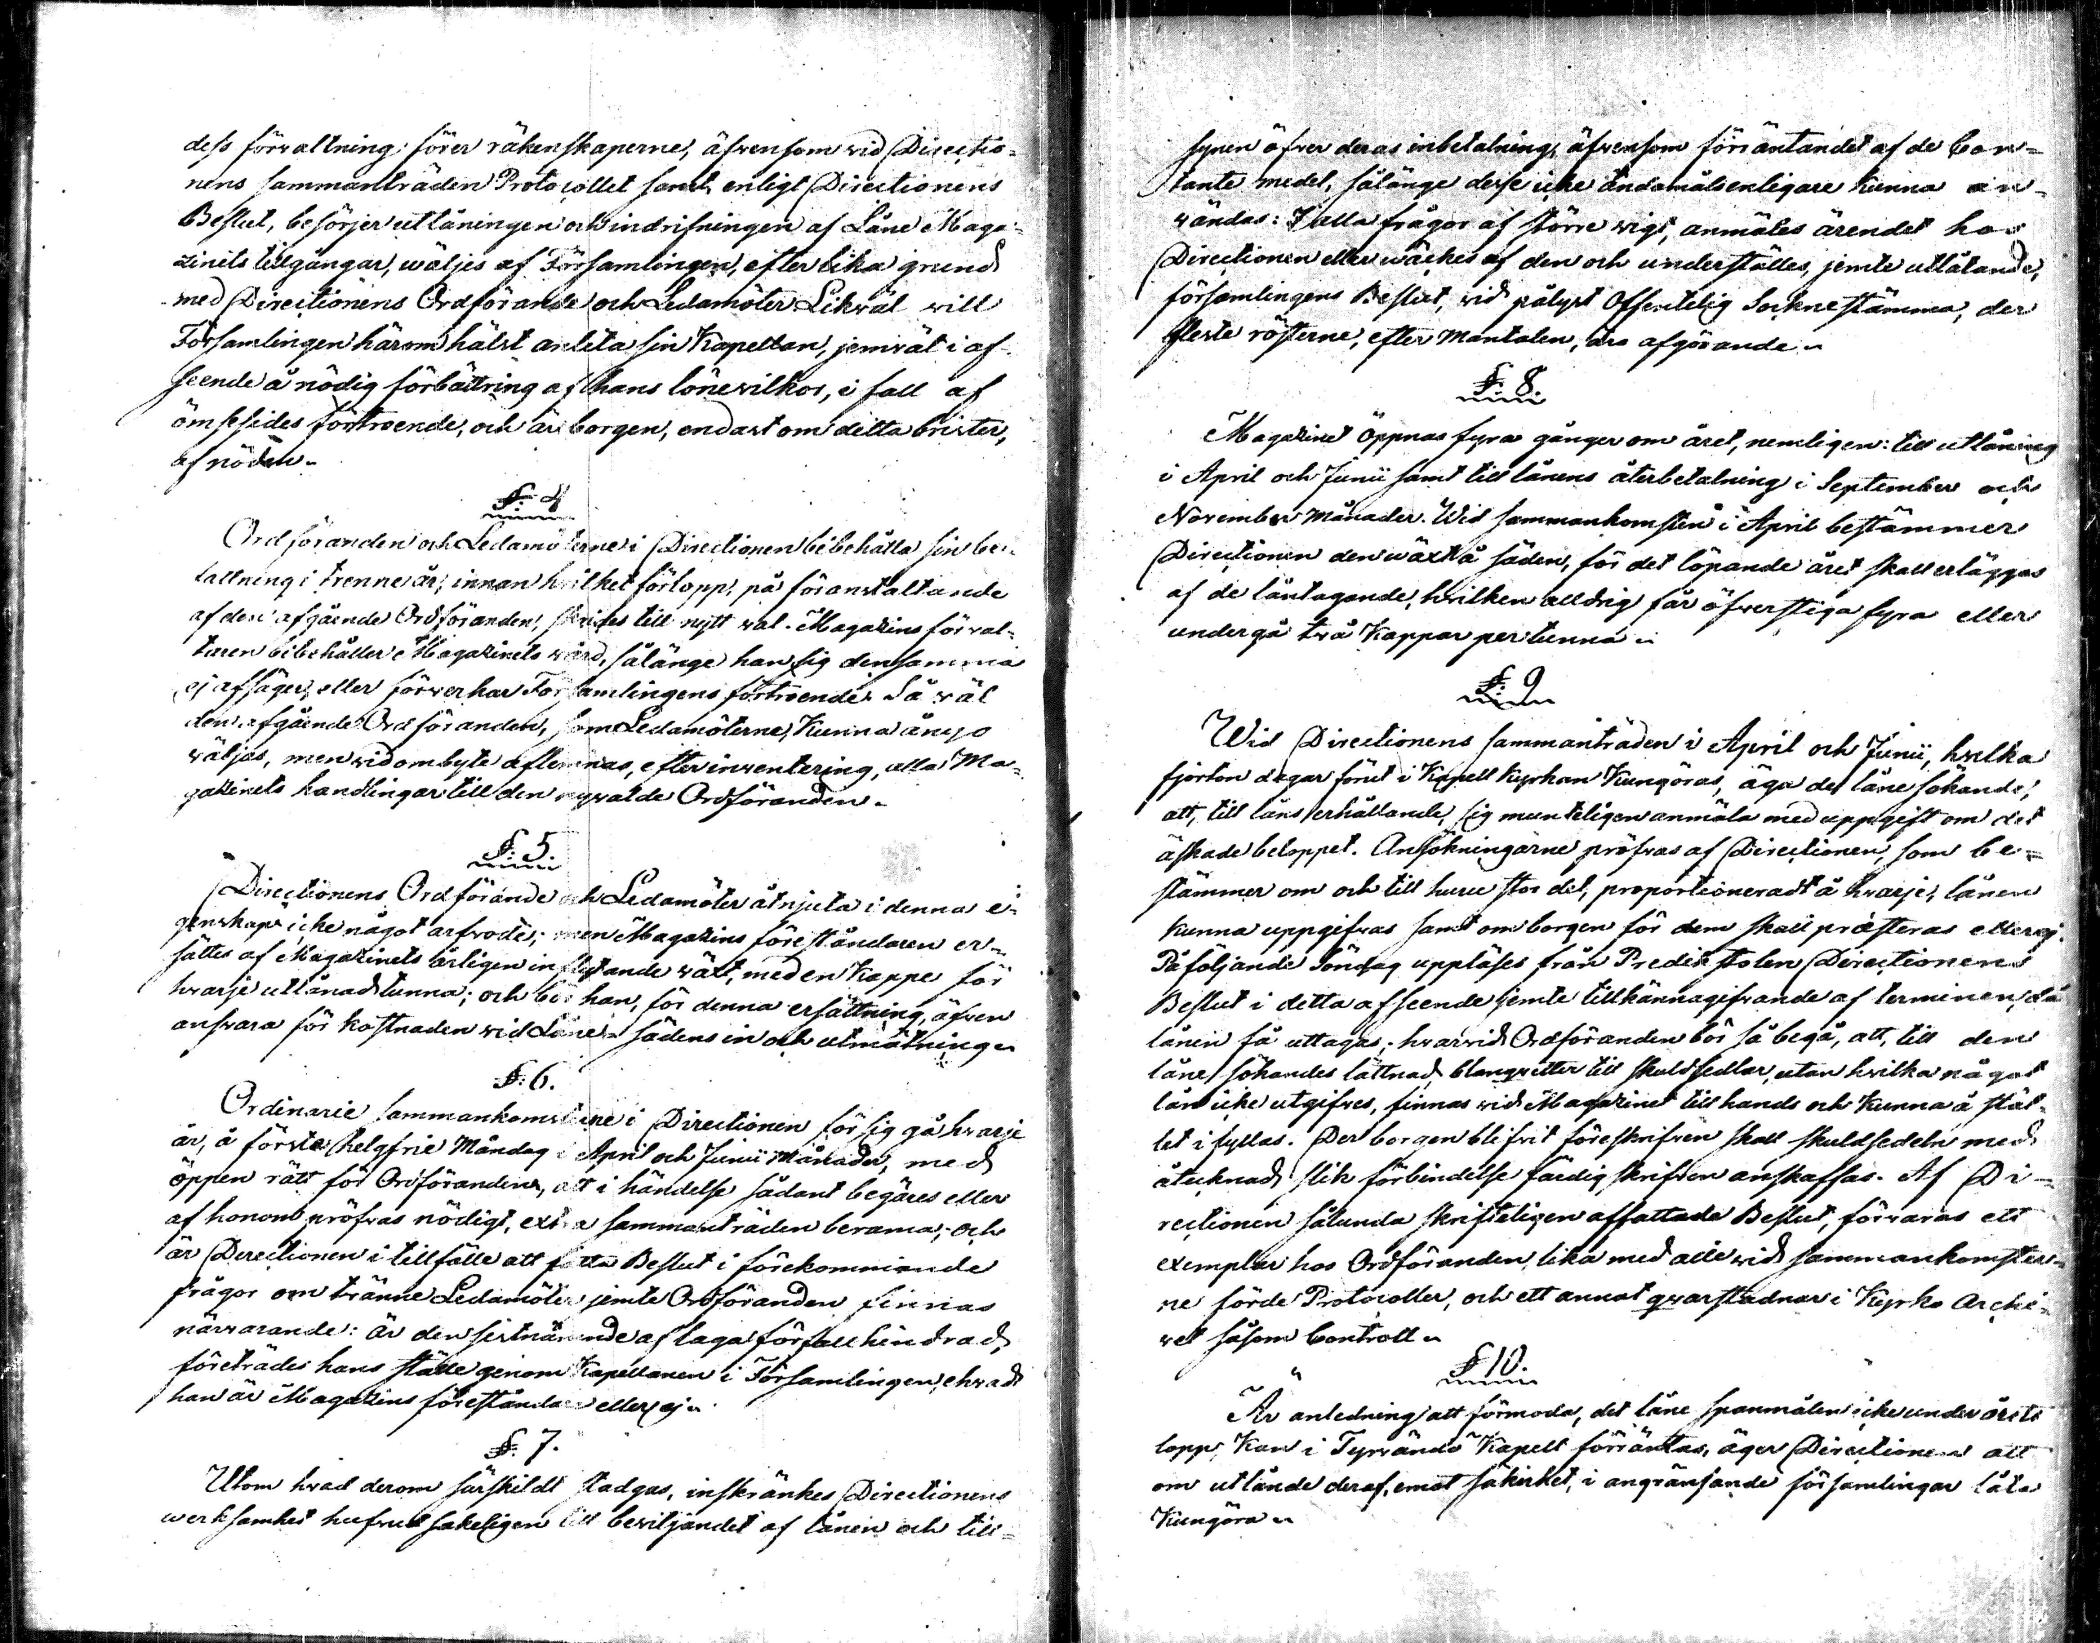 dess förvaltning: förer räkenskaperne, äfvensom vid Directio=
nens sammanträden Protocollet samt, enligt Directionens
Beslut, besörjer utlåningen och indrifningen af Låne Maga=
zinets tillgångar, wäljes af Församlingen, efter lika grund
med Directionens Ordförande och Ledamöter. Likväl will
Församlingen härom hälst anlita sin Kapellan, jemväl i af=
seende å nödig förbättring af hans lönevilkor, i fall af
ömsesides förtroende, och är borgen, endast om detta brister,
af nöden.
§. 4
Ordföranden och Ledamöterne i Directionen bibehålla sin be=
fattning i trenne år, innan hvilket förlopp, på föranstaltande
af den afgående Ordföranden, skrides till nytt val. Magazins förval=
taren bibehåller Magazinets wård, sålänge han sig densamma
ej afsäger, eller förverkar Församlingens förtroende. Så väl
den afgående Ordföranden, som Ledamöterne, Kunna ånyo
wäljas, men vid ombyte aflemnas, efter inventering, alla Ma=
gazinets handlingar till den nyvalde Ordföranden.
§. 5
Directionens Ordförande och Ledamöter åtnjuta i denna e=
genskap icke något arfvode; men Magazins föreståndaren er=
sättes af Magazinets årligen inflytande wäxt, med en Kappe för
hvarje utlånad tunna; och bör han, för denna ersättning, äfven
ansvara för kostnaden vid Låne sädens in och utmätning.
§. 6.
Ordinarie sammankomsterne i Directionen för sig gå hvarje
år, å första helgfrie Måndag i April och Junii Månader, med
öppen rätt för Ordföranden, att i händelse sådant begäres eller
af honom pröfvas nödigt, extra sammanträden berama; och
är Directionen i tillfälle att fatta Beslut i förekommande
frågor om tränne Ledamöter jemte Ordföranden finnas
närvarande: är den sistnämnde af laga förfall hindrad,
företrädes hans ställe genom Kapellanen i Församlingen, ehvad
han är Magazins föreståndare eller ej.
§. 7.
Utom hvad derom särskildt stadgas, inskränkes Directionens
werksamhet hufvudsakeligen till beviljandet af lånen och till=
synen öfver deras inbetalning, äfvensom förräntandet af de Con=
tante medel, sålänge desse icke ändamålsenligare kunna an=
vändas: I alla frågor af större vigt, anmäles ärendet hos
Directionen eller wäckes af den och underställes, jemte utlåtande,
församlingens Beslut, vid pålyst Offentelig Sockne stämma, der
fleste rösterne, efter Mantalen, äro afgörande.
§. 8.
Magazinet Öppnas fyra gånger om året, nemligen: till utlåning
i April och Junii samt till lånens återbetalning i September och
November Månader. Wid sammankomsten i April bestämmer
Directionen den wäxt å säden, för det löpande året skall erläggas
af de låntagande, hvilken alldrig får öfverstiga fyra eller
undergå två Kappar per tunna.
§. 9
Wid Directionens sammanträden i April och Junii, hvilka
fjorton dagar förut i Kapell Kyrkan Kungöras, äga de låne sökande,
att, till låns erhållande, sig munteligen anmäla med uppgift om det
äskade beloppet. Ansökningarne pröfvas af Directionen, som be=
stämmer om och till huru stor del, proportioneradt å hvarje, lånen
kunna uppgifvas samt om borgen för dem skall præsteras eller ej.
På följande Söndag uppläses från Predikstolen Directionens
Beslut i detta afseende jemte tillkännagifvande af terminen, då
lånen få uttagas, hvarvid Ordföranden bör så begå, att, till den
låne sökandes lättnad, blanqvetter till skuldsedlar, utan hvilka något
lån icke utgifves, finnas vid Magazinet till hands och kunna å stäl=
let i fyllas. Der borgen blifvit föreskrifven skall skuldsedeln med
åtecknad slik förbindelse färdig skrifven anskaffas. Af Di=
rectionen sålunda skrifteligen affattade Beslut, förvaras ett
exemplar hos Ordföranden, lika med alle vid sammankomster=
ne förde Protocoller, och ett annat qvarstadnar i Kyrko Archi=
vet såsom Controll.
§ 10.
Är anledning att förmoda, det låne spanmålen icke under årets
lopp, Kan i Tyrvändö Kapell förräntas, äger Directionen att
om utlånde deraf, emot säkerhet, i angränsande församlingar låta
Kungöra.